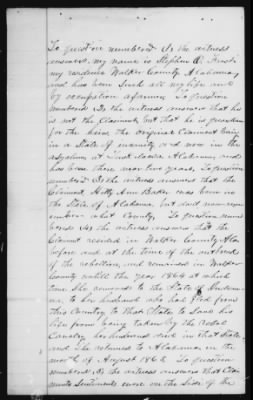 To question numbered 1 the witness
answers, my name is Stephen A.
my residence Walker County Alabama,
and has been such all my life and
by occupation a farmer. To question
numbered 2 the witness answers that he
is not the Claimant, but that he is guardian
for the heirs, the original Claimant being
in a State of insanity and now in the
asylum at Alabama, and
has been there near two years. To question
numbered the witness answers that the
Claimant, Hetty Ann Baker was born in
the State of Alabama, but does not rem
ember what County. To question num
bered the witness answers that the
Claimant resided in Walker County Ala
before and at the time of the outbreak
of the rebellion, and remained in Walker
County untill the year 1864 at which
time she removed to the State of Indian
a, to her husband who had fled from
this Country to that State to save his
life from being taken by the rebel
Cavalry, her husband died in that State,
and She returned to Alabama in the
month of August 186 To question
numbered the witness answers that Clai
mants Sentiments were on the Side of the